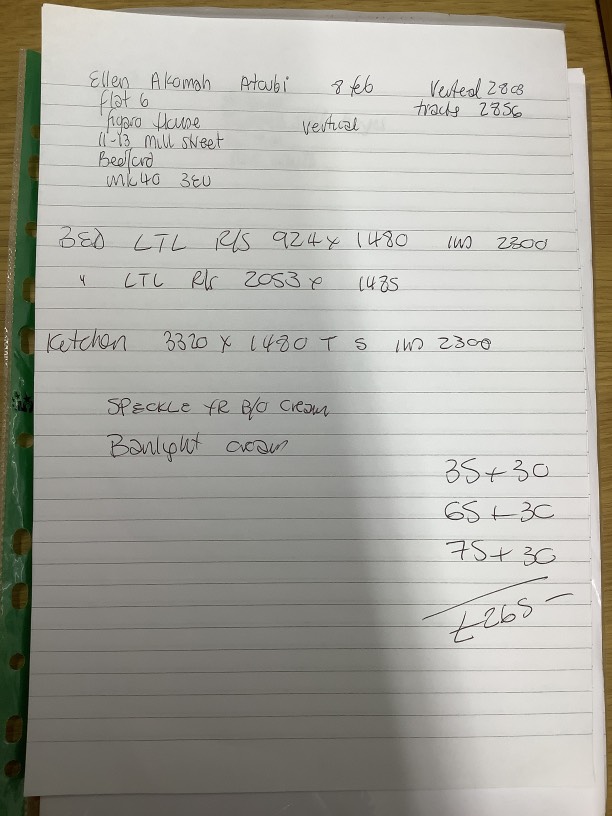 Ellen Akomah Atcubi 8 feb Verteal 2808
flat 6 tracks 2856
figaro House vertical
11-13 Mill street
Bedford
MK40 3EU
BED LTL R/S 924 x 1480 IW 2300
" LTL R/S 2053 x 1485
Ketchen 3320 x 1480 T S IW 2300
SPECKLE FR B/O Cream
Banlight cream
35 + 30
65 + 30
75 + 30
£265 -